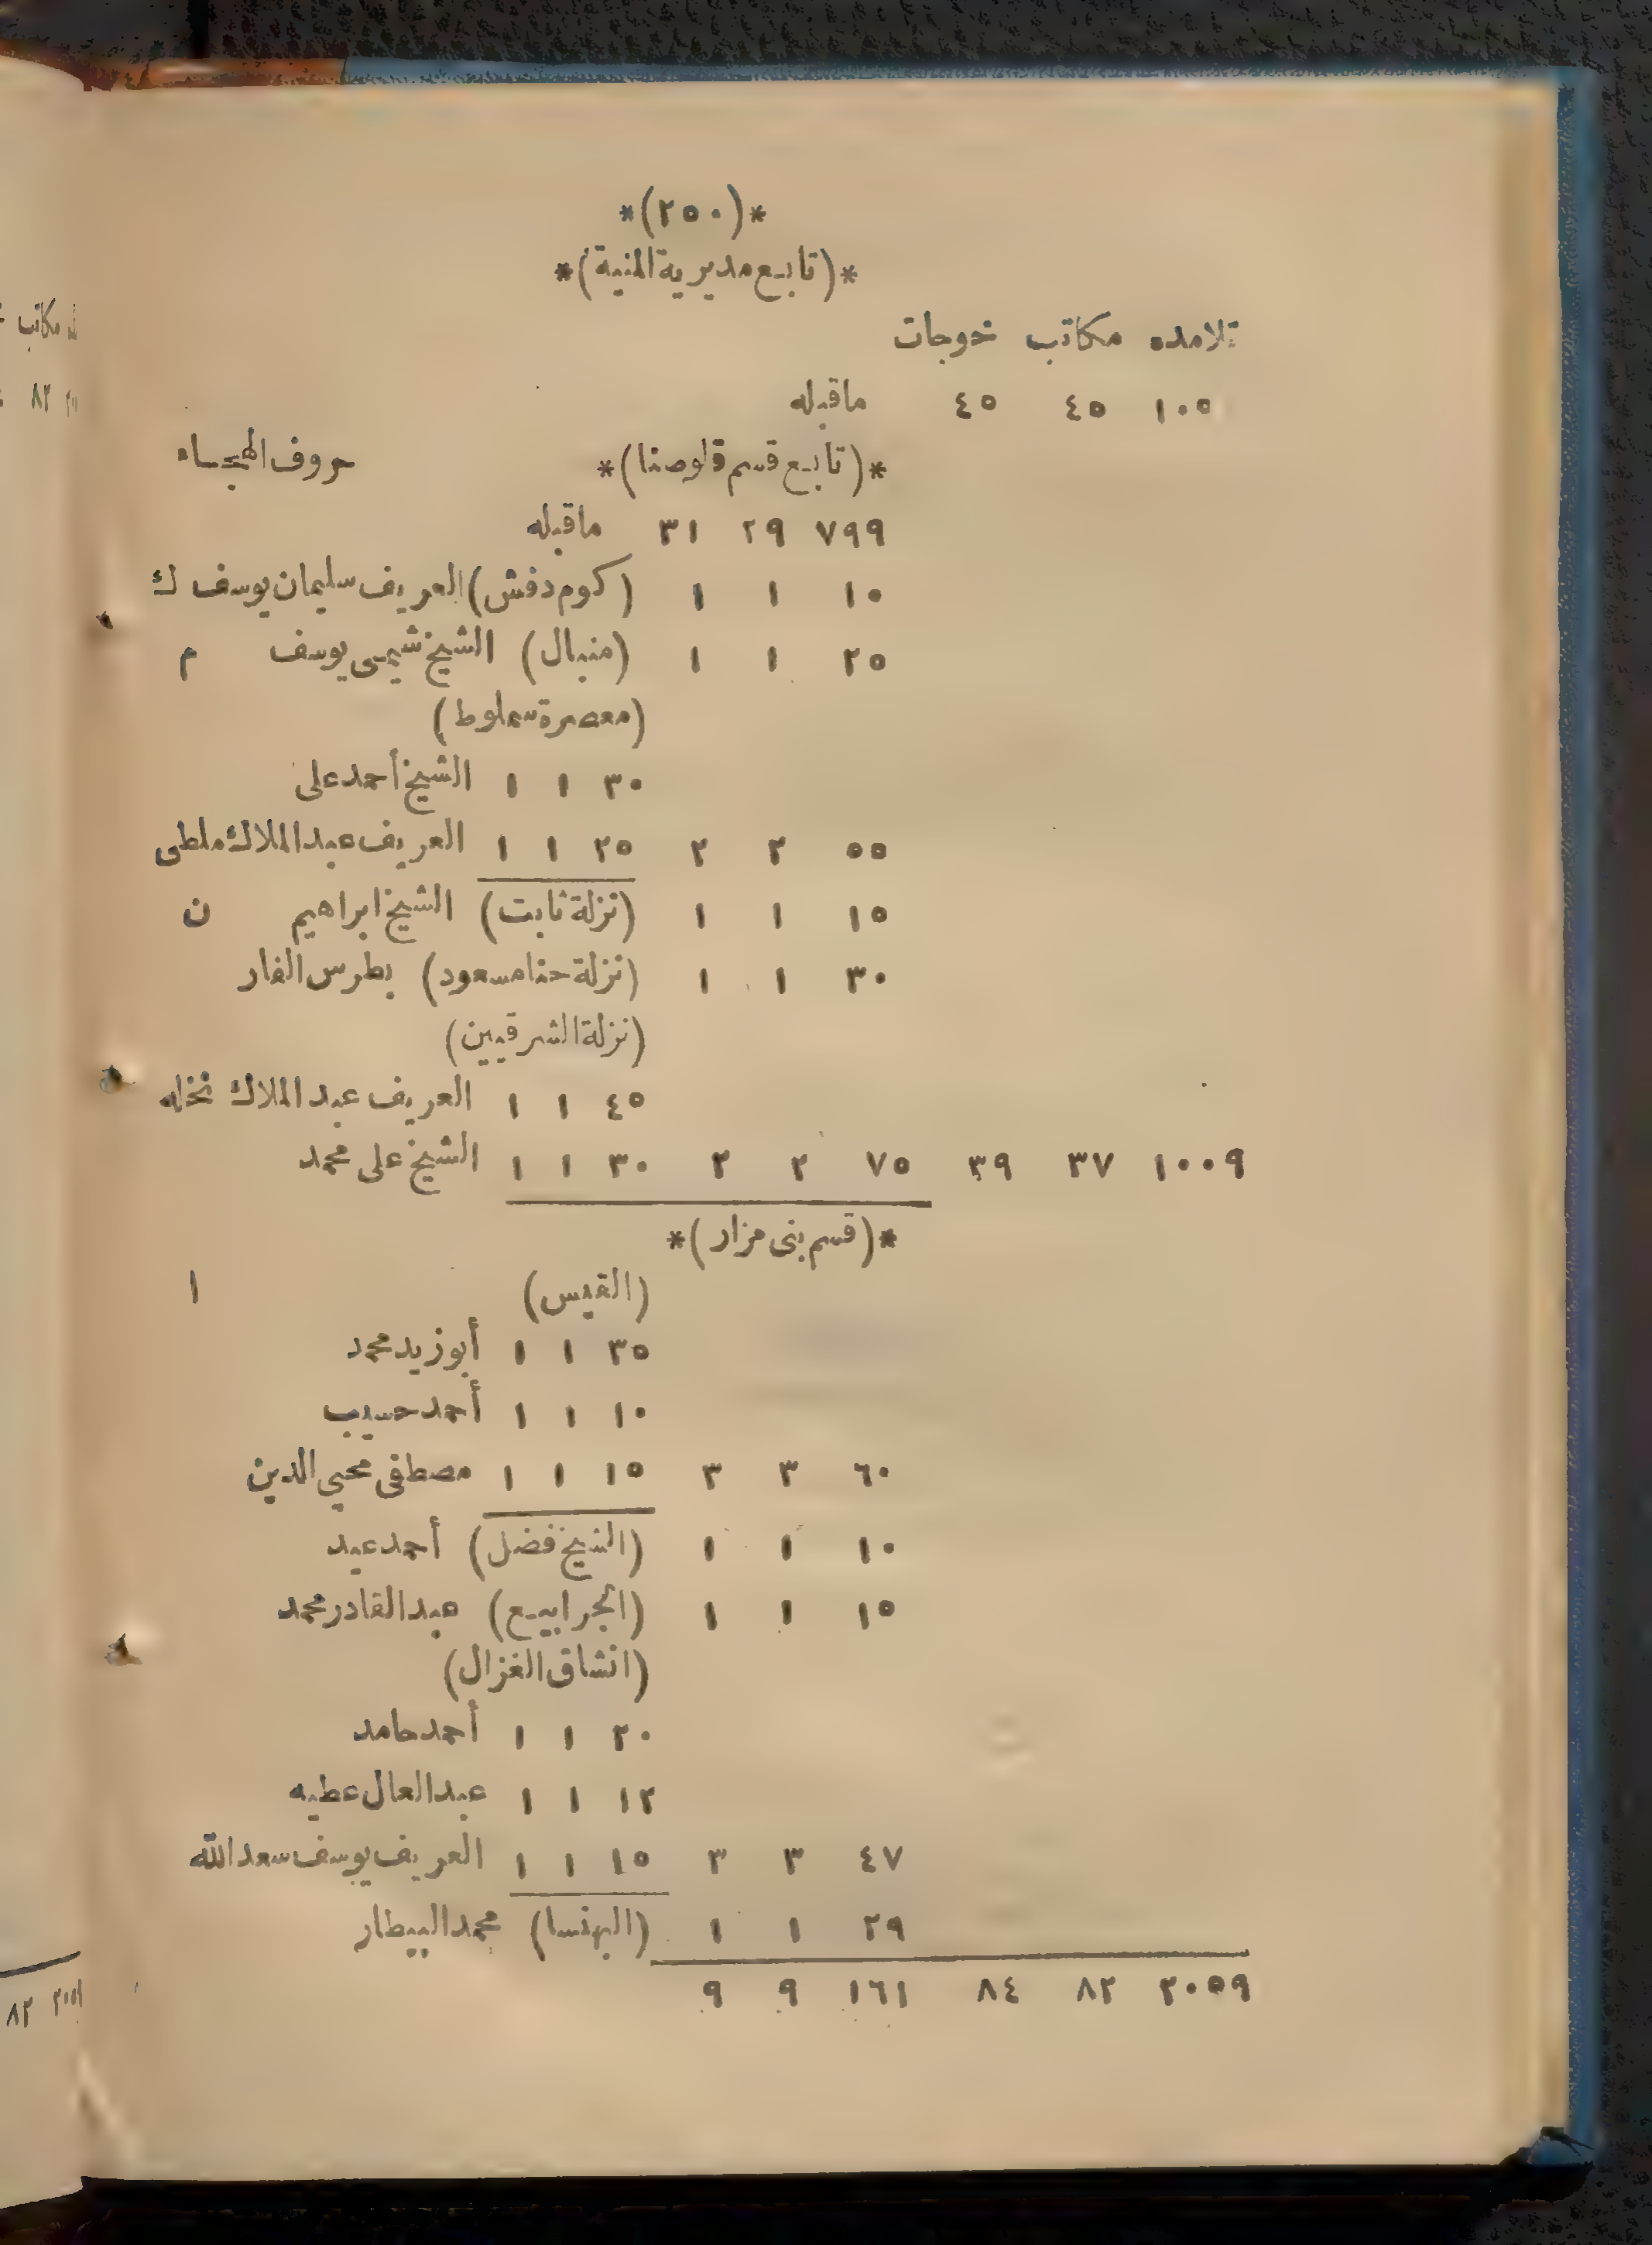 *(٢٥٠)*
*(تابع مديرية المنية)*
تلامده مكاتب خوجات
١٠٥٠ ٤٥ ٤٥ ماقبله
*(تابع قسم قلوصنا)* حروف الهجاء
٧٩٩ ٢٩ ٣١ ماقبله
١٠ ١ ١ (كوم دفش) العريف سليمان يوسف ك
٢٥ ١ ١ (منبال) الشيخ شيمى يوسف م
(معصرة سملوط)
٣٠ ١ ١ الشيخ أحمد على
٥٥ ٢ ٢ ٢٥ ١ ١ العريف عبد الملاك ملطى
١٥ ١ ١ (نزلة ثابت) الشيخ ابراهيم ن
٣٠ ١ ١ (نزلة حنا مسعود) بطرس الفار
(نزلة الشرقيين)
٤٥ ١ ١ العريف عبد الملاك نخله
١٠٠٩ ٣٧ ٣٩ ٧٥ ٢ ٢ ٣٠ ١ ١ الشيخ على محمد
*(قسم بنى مزار)*
(القيس) ا
٣٥ ١ ١ أبو زيد محمد
١٠ ١ ١ أحمد حسيب
٦٠ ٣ ٣ ١٥ ١ ١ مصطفى محيي الدين
١٠ ١ ١ (الشيخ فضل) أحمد عيد
١٥ ١ ١ (الجرابيع) عبد القادر محمد
(انشاق الغزال)
٢٠ ١ ١ أحمد حامد
١٢ ١ ١ عبد العال عطيه
٤٧ ٣ ٣ ١٥ ١ ١ العريف يوسف سعد الله
٢٩ ١ ١ (البهنسا) محمد البيطار
٢٠٥٩ ٨٢ ٨٤ ١٦١ ٩ ٩